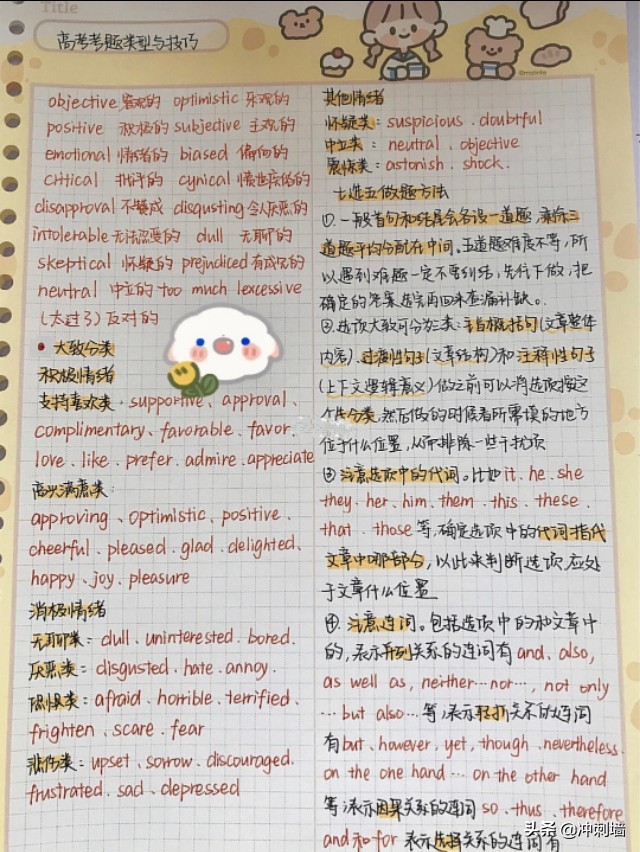 Title
高考考题类型与技巧
objective 客观的 optimistic 乐观的
positive 积极的 subjective 主观的
emotional 情绪的 biased 偏向的
critical 批评的 cynical 愤世疾俗的
disapproval 不赞成 disgusting 令人厌恶的
intolerable 无法忍受的 dull 无聊的
skeptical 怀疑的 prejudiced 有成见的
neutral 中立的 too much lexcessive
(太过了) 反对的
大致分类
积极情绪
支持喜欢类. supportive、approval、
complimentary、favorable、favor、
love、like、prefer、admire、appreciate
高兴满意类:
approving、optimistic、positive、
cheerful、pleased、glad、delighted、
happy、joy、pleasure
消极情绪
无聊类: dull、uninterested、bored、
厌恶类: disgusted、hate、annoy、
恐惧类: afraid、horrible、terrified、
frighten、scare、fear
悲伤类: upset、sorrow、discouraged、
frustrated、sad、depressed
其他情绪
怀疑类: suspicious、doubtful
中立类: neutral、objective
震惊类: astonish、shock、
七选五做题方法
①. 一般首句和结尾会各设一道题, 剩余三
道题平均分配在中间。五道题难度不等, 所
以遇到难题一定不要纠结, 先往下做, 把
确定的答案选完再回来查漏补缺。
②选项大致可分为三类: 主旨概括句(文章整体
内容)、过渡性句子(文章结构)和注释性句子
(上下文逻辑意义)做之前可以将选项按这
个分类, 然后做的时候看所需填的地方
位于什么位置, 从而排除一些干扰项
③注意选项中的代词。比如it、he、she
they、her、him、them、this、these、
that、those 等, 确定选项中的代词指代
文章中哪部分, 以此来判断选项应处
于文章什么位置
④. 注意连词。包括选项中的和文章中
的, 表示并列关系的连词有 and、also,
as well as, neither…nor…, not only
…but also…等; 表示转折关系的连词
有but、however、yet、though、nevertheless、
on the one hand … on the other hand
等; 表示因果关系的连词 so、thus、therefore
and 和 for 表示选择关系的连词有
头条 @冲刺墙